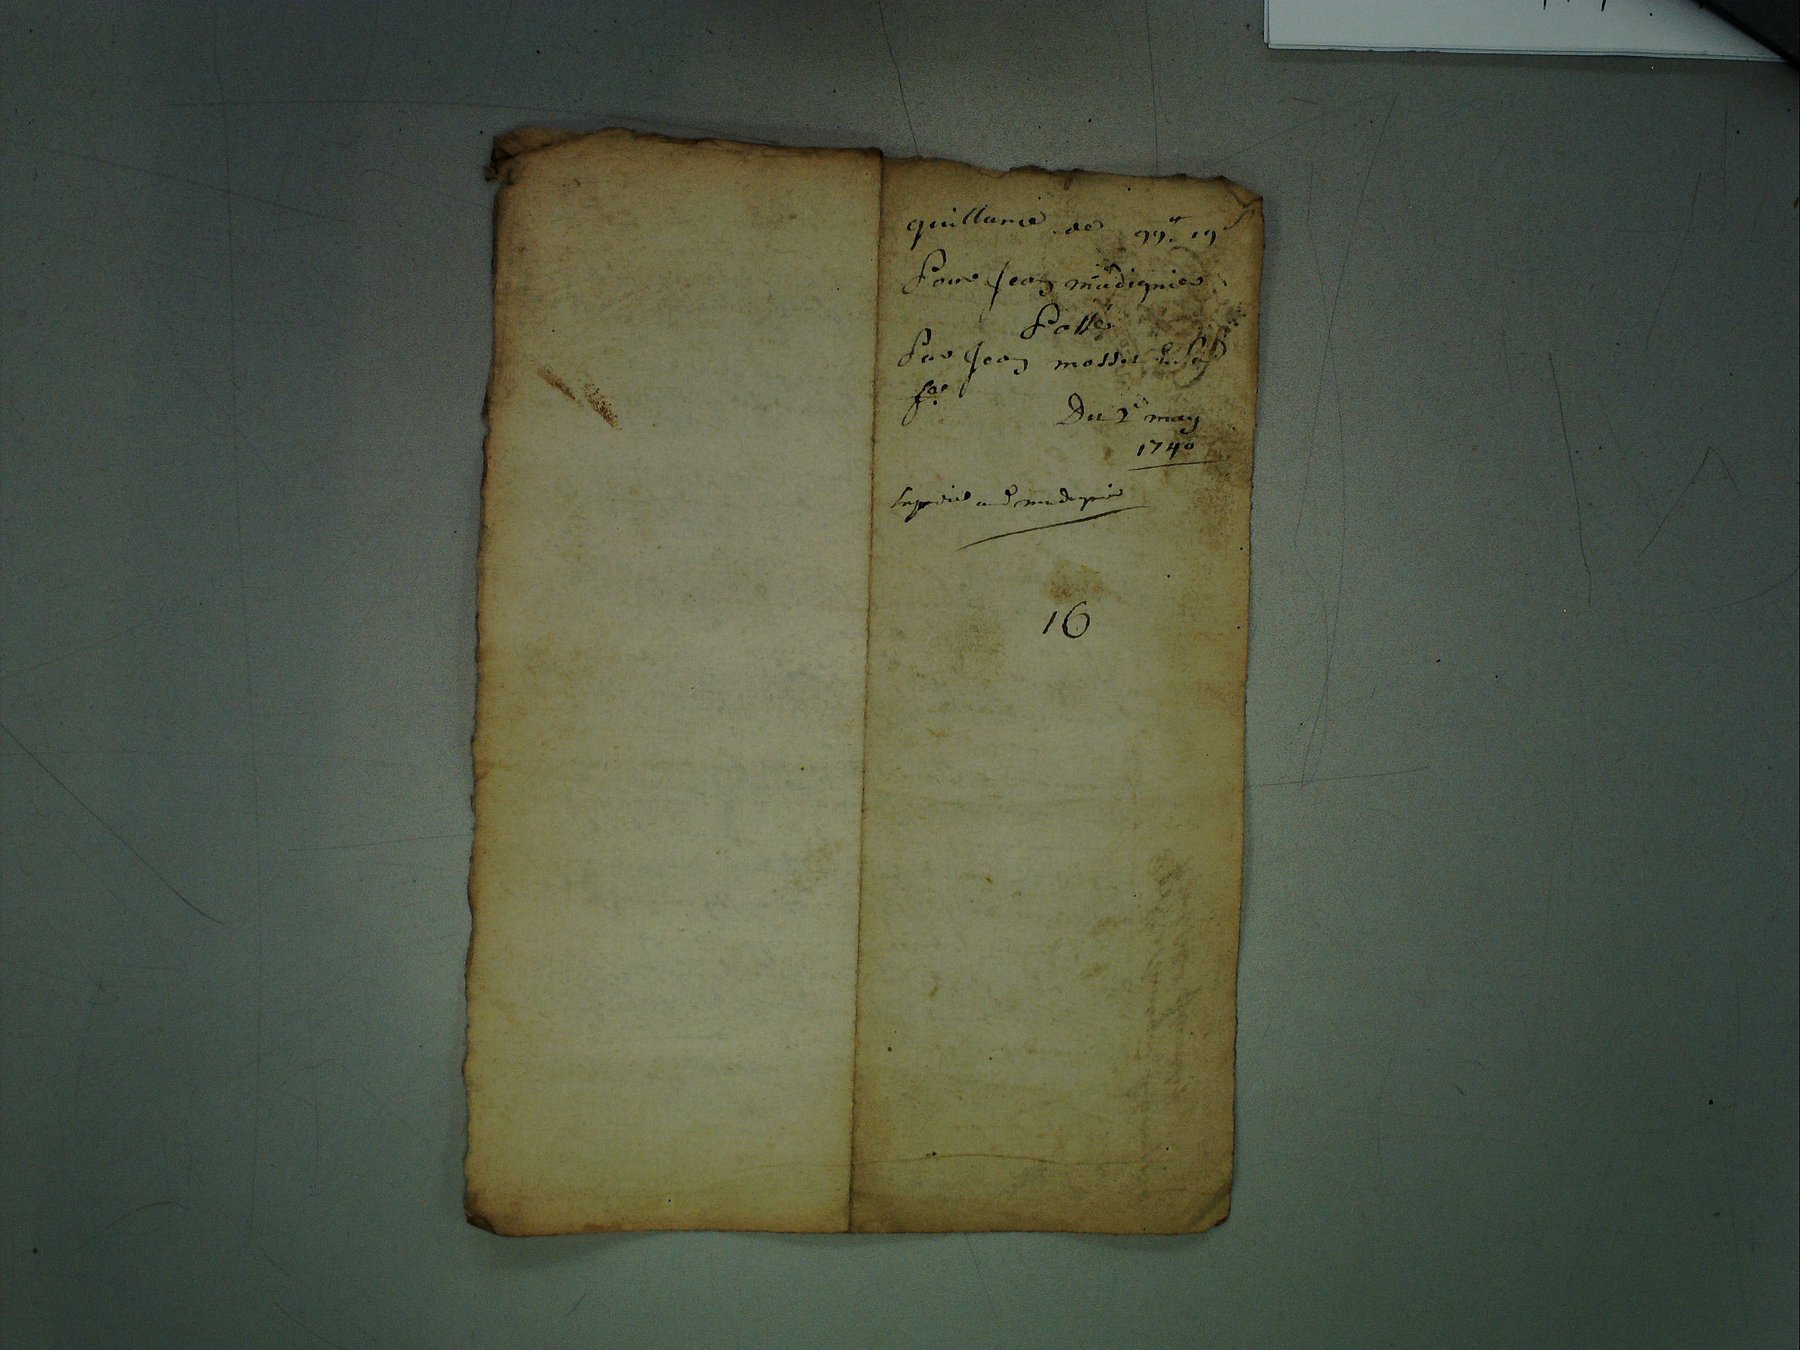 quittance de 99lt 19s
Pour Jean madignier
Passé
Par Jean mosser
Du 2e may
1740
madignier
16